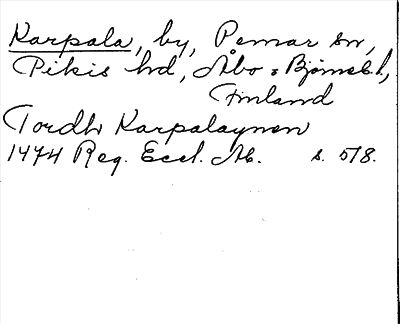 Karpala, by, Pemar sn,
Pikis hd, Åbo o Björneb. l.,
Finland
Tordh Karpalaynen
1474 Reg. Eccl. Ab. s. 578.